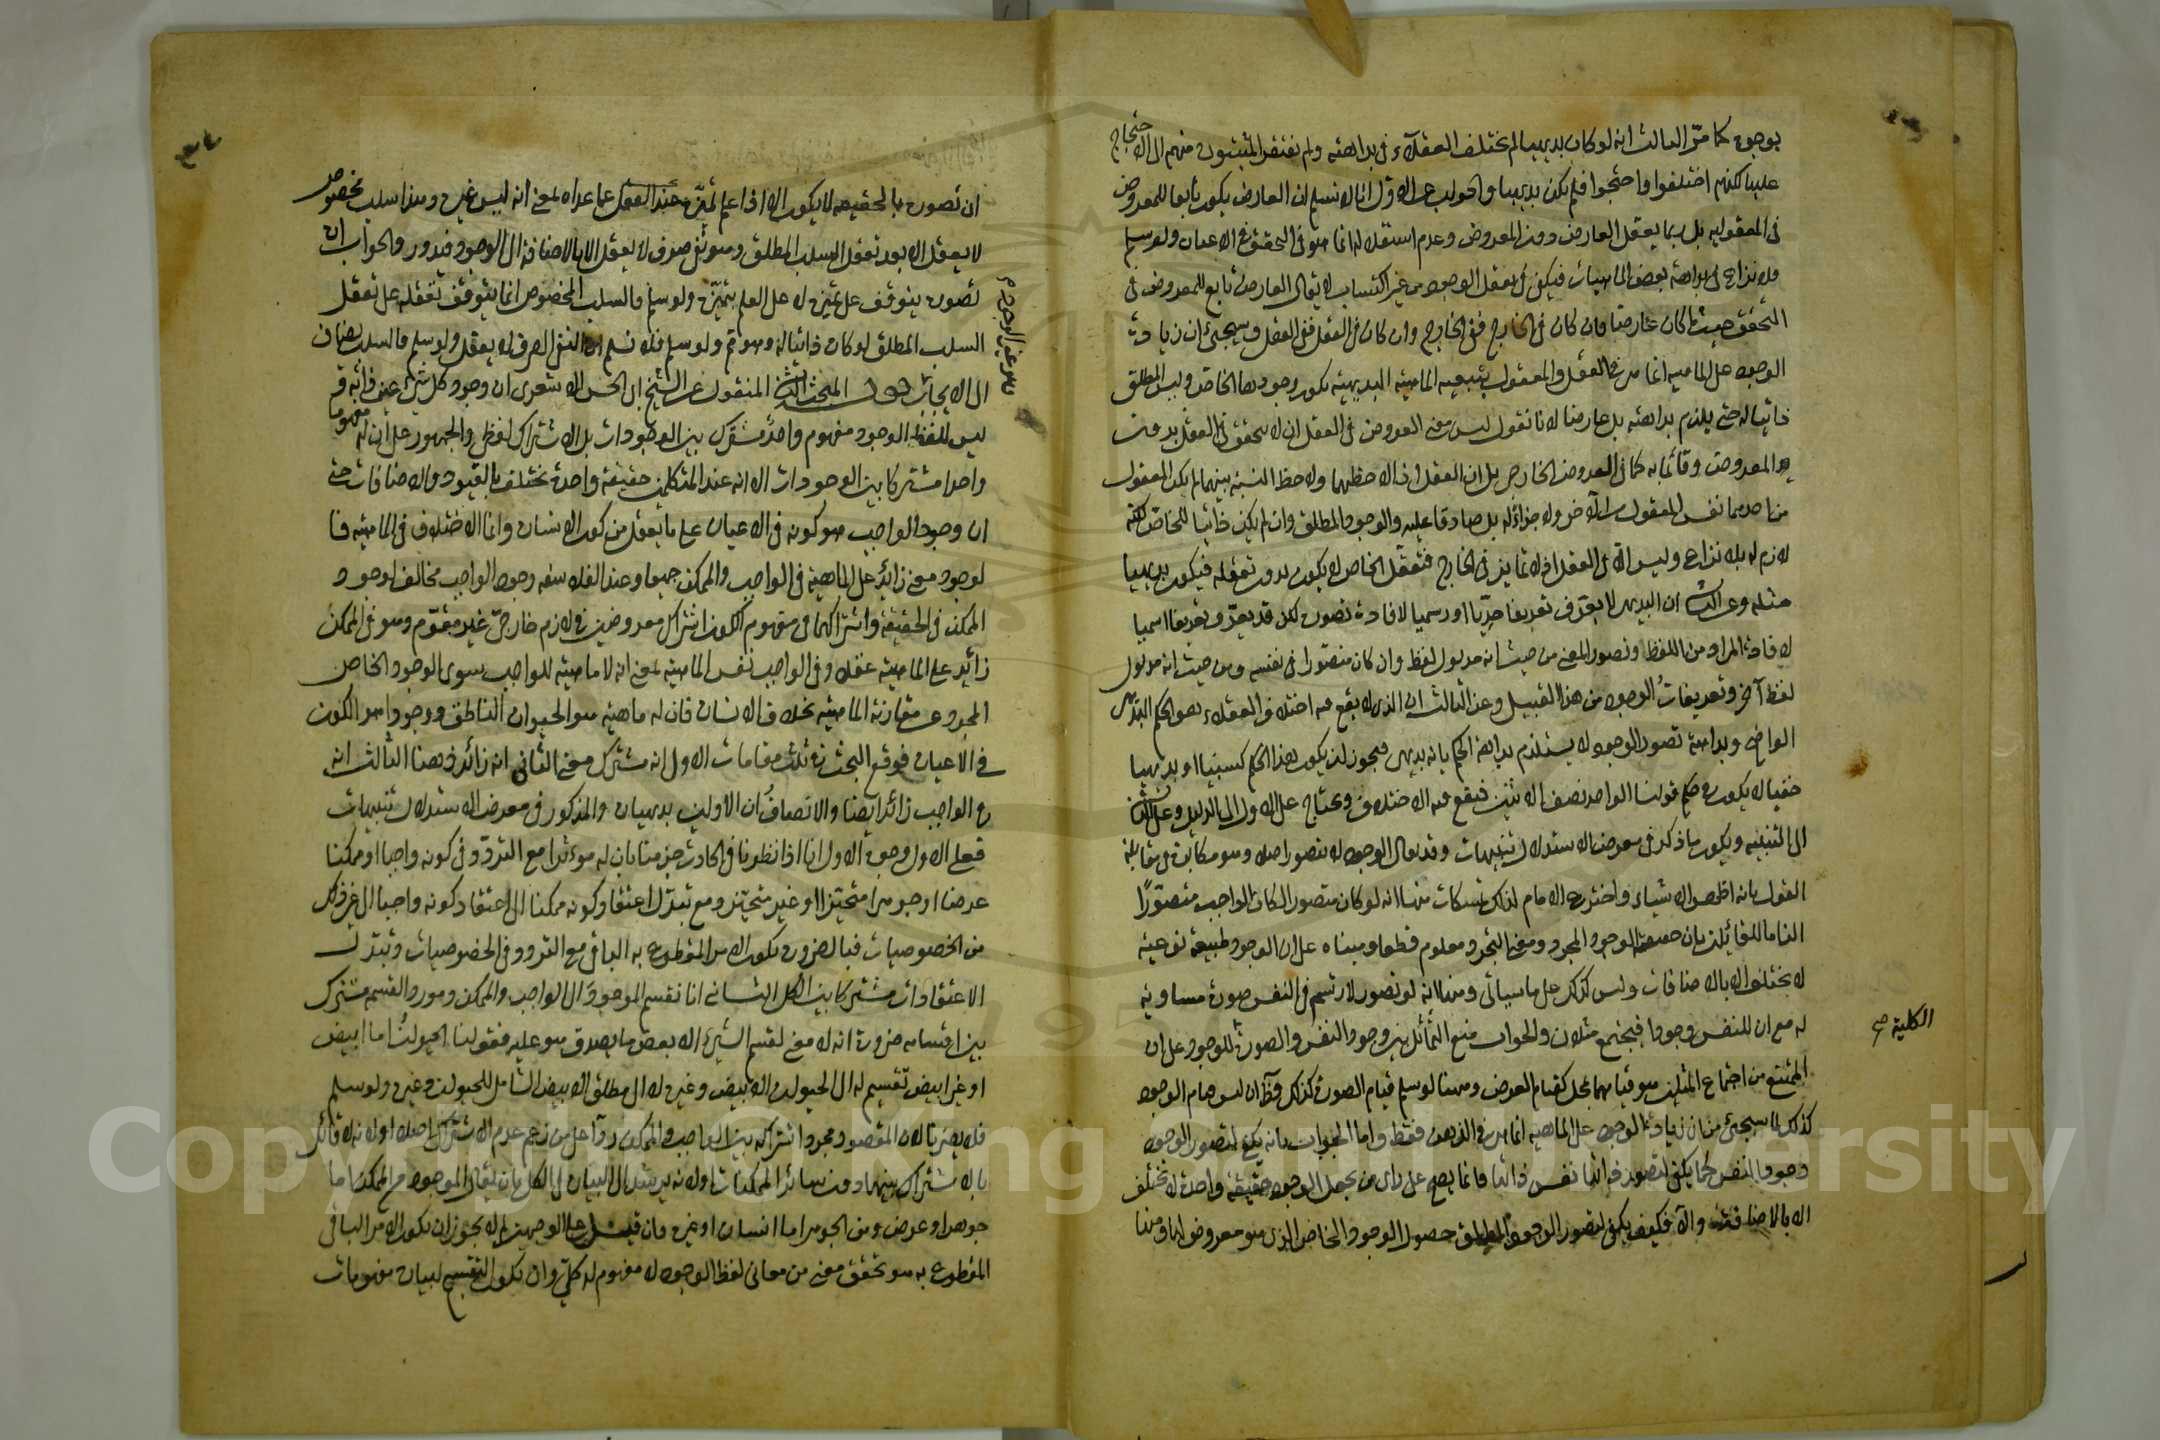 بوجوه كما مر الثالث انه لو كان بديهيا لم يختلف العقلاء في بداهته ولم يفتقر المثبتون منهم الى الاحتجاج
عليها لكنهم اختلفوا واحتجوا فلم يكن بديهيا والجواب عن الاول انا لا نسلم ان العارض يكون تابعا للمعروض
في المعقولية بل ربما يعقل العارض دون المعروض وعدم استقلاله انما هو في التحقق في الاعيان ولو سلم
فلا نزاع في بداهة بعض الماهيات فيكفي في تعقل الوجود من غير اكتساب لا يقال العارض تابع للمعروض في
التحقق حيثما كان عارضا فان كان في الخارج ففي الخارج وان كان في العقل ففي العقل وسيجيء ان زيادة
الوجود على الماهية انما هي في العقل والمعقول بتبعية الماهية البديهية يكون وجودها الخاص وليس المطلق
ذاتيا له حتى يلزم بداهته بل عارضا لانا نقول ليس معنى العروض في العقل ان لا يتحقق في العقل بدون
المعروض وقائما به كما في العروض الخارجي بل ان العقل اذا لاحظهما ولاحظ النسبة بينهما لم يكن المعقول
من احدهما نفس المعقول من الآخر ولا جزءا له بل صادقا عليه والوجود المطلق وان لم يكن ذاتيا للخاص لكنه
لازم له بلا نزاع وليس الا في العقل اذ لا تمايز في الخارج فتعقل الخاص لا يكون بدون تعقله فيكون بديهيا
مثله وعن الثاني ان البديهي لا يعرف تعريفا حديا او رسميا لافادة تصوره لكن قد يعرف تعريفا اسميا
لافادة المراد من اللفظ وتصور المعنى من حيث انه مدلول لفظ وان كان متصورا في نفسه ومن حيث انه مدلول
لفظ آخر وتعريفات الوجود من هذا القبيل وعن الثالث ان الذي لا يقع فيه اختلاف العقلاء هو الحكم البديهي
الواضح وبداهة تصور الوجود لا يستلزم بداهة الحكم بانه بديهي فيجوز ان يكون هذا الحكم كسبيا او بديهيا
خفيا لا يكون في حكم قولنا الواحد نصف الاثنين فيقع فيه الاختلاف ويحتاج على الاول الى الدليل وعلى الثاني
الى التنبيه ويكون ما ذكر في معرض الاستدلال تنبيهات وقد يقال الوجود لا يتصور اصلا وهو مكابرة في مقابلة
القول بانه اظهر الاشياء واخترع الامام لذلك تمسكات منها انه لو كان متصورا لكان الواجب متصورًا
الزاما للقائلين بان حقيقته الوجود المجرد ومعنى التجرد معلوم قطعا ومبناه على ان الوجود طبيعة نوعية
لا يختلف الا بالاضافات وليس كذلك على ما سيأتي ومنها انه لو تصور لارتسم في النفس صورة مساوية
له مع ان للنفس وجودا فيجتمع مثلان والجواب منع التماثل بين وجود النفس والصورة للوجود على ان
الكلية صح
الممتنع من اجتماع المثلين هو قيامهما بمحل كقيام العرض وههنا لو سلم قيام الصورة كذلك فظاهر ان ليس قيام الوجود
كذلك لما سيجيء من ان زيادة الوجود على الماهية انما هي في الذهن فقط واما الجواب بانه يكفي لتصور الوجود
وجود النفس كما يكفي لتصور ذاتها نفس ذاتها فانما يصح على رأي من يجعل الوجود حقيقة واحدة لا تختلف
الا بالاضافة والا فكيف يكفي لتصور الوجود المطلق حصول الوجود الخاص الذي هو معروض لها ومنها
ان تصوره بالحقيقة لا يكون الا اذا علم تميزه عند العقل عما عداه بمعنى انه ليس غيره وهذا سلب مخصوص
لا يعقل الا بعد تعقل السلب المطلق وهو نفي صرف لا يعقل الا بالاضافة الى الوجود فيدور والجواب ان
تصوره يتوقف على تميزه لا على العلم بتميزه ولو سلم فالسلب المخصوص انما يتوقف تعقله على تعقل
السلب المطلق لو كان ذاتيا له وهو ثم ولو سلم فلا نسلم ان النفي الصرف لا يعقل ولو سلم فالسلب يضاف
الى الايجاب المبحث الثاني المنقول عن الشيخ ابي الحسن الاشعري ان وجود كل شيء عين ذاته و
ليس للفظ الوجود مفهوم واحد مشترك بين الوجودات بل الاشتراك لفظي والجمهور على ان له مفهوما
واحدا مشتركا بين الوجودات الا انه عند المتكلمين حقيقة واحدة تختلف بالقيود والاضافات حتى
ان وجود الواجب هو كونه في الاعيان على ما يعقل من كون الانسان وانما الاختلاف في الماهية فا
لوجود معنى زائد على الماهية في الواجب والممكن جميعا وعند الفلاسفة وجود الواجب مخالف لوجود
الممكن في الحقيقة واشتراكهما في مفهوم الكون اشتراك معروضين في لازم خارجي غير مقوم وهو في الممكن
زائد على الماهية عقلا وفي الواجب نفس الماهية بمعنى انه لا ماهية للواجب سوى الوجود الخاص
المجرد عن مقارنة الماهية بخلاف الانسان فان له ماهية هو الحيوان الناطق ووجودا هو الكون
في الاعيان فوقع البحث في ثلث مقامات الاول انه مشترك معنى الثاني انه زائد ذهنا الثالث انه
في الواجب زائد ايضا والانصاف ان الاولين بديهيان والمذكور في معرض الاستدلال تنبيهات
فعلى الاول وجوه الاول انا اذا نظرنا في الحادث جزمنا بان له مؤثرا مع التردد في كونه واجبا او ممكنا
عرضا او جوهرا متحيزا او غير متحيز ومع تبدل اعتقاد كونه ممكنا الى اعتقاد كونه واجبا الى غير ذلك
من الخصوصيات فبالضرورة يكون الامر المقطوع به الباقي مع التردد في الخصوصيات وتبدل
الاعتقادات مشتركا بين الكل الثاني انا نقسم الموجود الى الواجب والممكن ومورد القسمة مشترك
بين اقسامه ضرورة انه لا معنى لقسم الشيء الا بعض ما يصدق هو عليه فقولنا الحيوان اما ابيض
او غير ابيض تقسيم له الى الحيوان الابيض وغيره لا الى مطلق الابيض الشامل للحيوان وغيره ولو سلم
فلا يضرنا لان المقصود مجرد اشتراكه بين الواجب والممكن ردا على من زعم عدم الاشتراك اصلا او لانه لا قائل
بالاشتراك بينهما دون سائر الممكنات او لانه يرشد الى البيان في الكل بان يقال الموجود من الممكن اما
جوهر او عرض ومن الجوهر اما انسان او غيره فان قيل على الوجهين لم لا يجوز ان يكون الامر الباقي
المقطوع به هو تحقق معنى من معاني لفظ الوجود لا مفهوم له كلي وان يكون التقسيم لبيان مفهومات
Copyright © King Saud University
1957